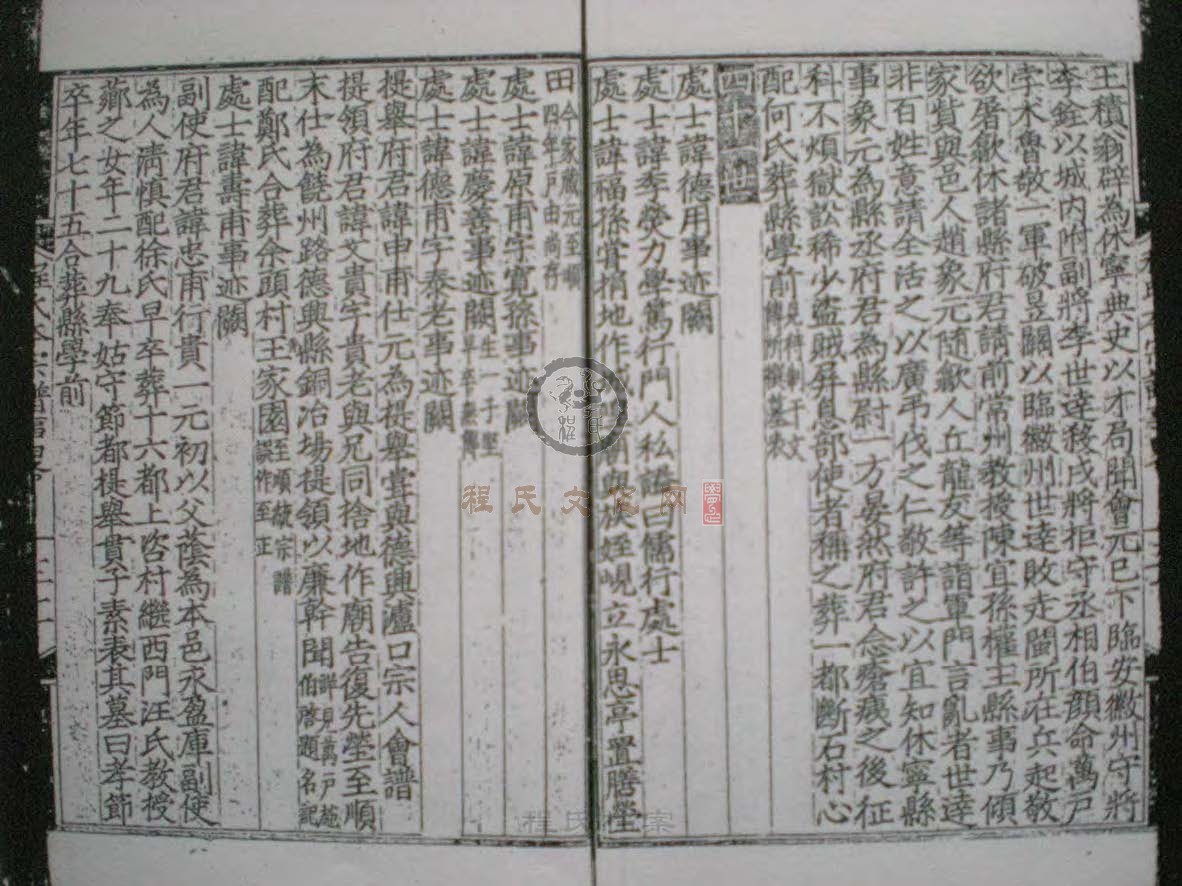 王積翁辟為休寧典史以才局聞會元已下臨安徽州守將
李銓以城內附副將李世逵殺戍將拒守丞相伯顏命萬戶
孛术魯敬一軍破昱關以臨徽州世逵敗走閩所在兵起敬
欲屠歙休諸縣府君請前常州教授陳宜孫權主縣事乃傾
家貲與邑人趙象元隨歙人丘龍友等詣軍門言亂者世逵
非百姓意請全活之以廣弔伐之仁敬許之以宜知休寧縣
事象元為縣丞府君為縣尉一方晏然府君念瘡痍之後征
科不煩獄訟稀少盜賊屏息部使者稱之葬一都斷石村心
配何氏葬縣學前
四十世
處士諱德用事迹闕
處士諱季熒力學篤行門人私諡曰儒行處士
處士諱福孫嘗捐地作 與族姪峴立永思亭置膳塋
田今家藏元至順四年戶由尚存
處士諱原甫字寬孫事迹闕
處士諱慶善事迹闕生一子堅早卒無傳
處士諱德甫字泰老事迹闕
提舉府君諱申甫仕元為提舉嘗與德興瀘口宗人會譜
提領府君諱文貴字貴老與兄同捨地作廟告復先塋至順
末仕為饒州路德興縣銅冶場提領以廉幹聞詳見萬戶趙伯啓題名記
配鄭氏合葬佘頭村王家園至順舊宗譜誤作至正
處士諱壽甫事迹闕
副使府君諱忠甫行貴一元初以父蔭為本邑永盈庫副使
為人淸慎配徐氏早卒葬十六都上咨村繼西門汪氏教授
薌之女年二十九奉姑守節都提舉貫子素表其墓曰孝節
卒年七十五合葬縣學前
程氏文化网
程氏